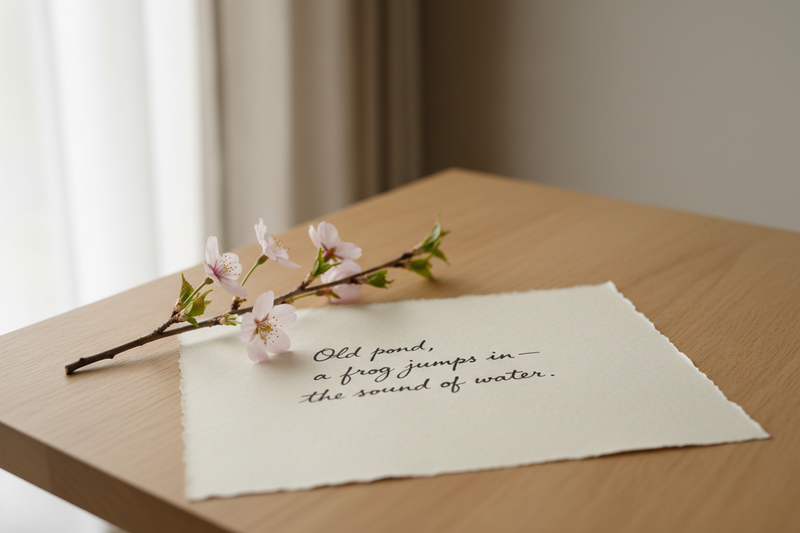 Old pond,
a frog jumps in—
the sound of water.